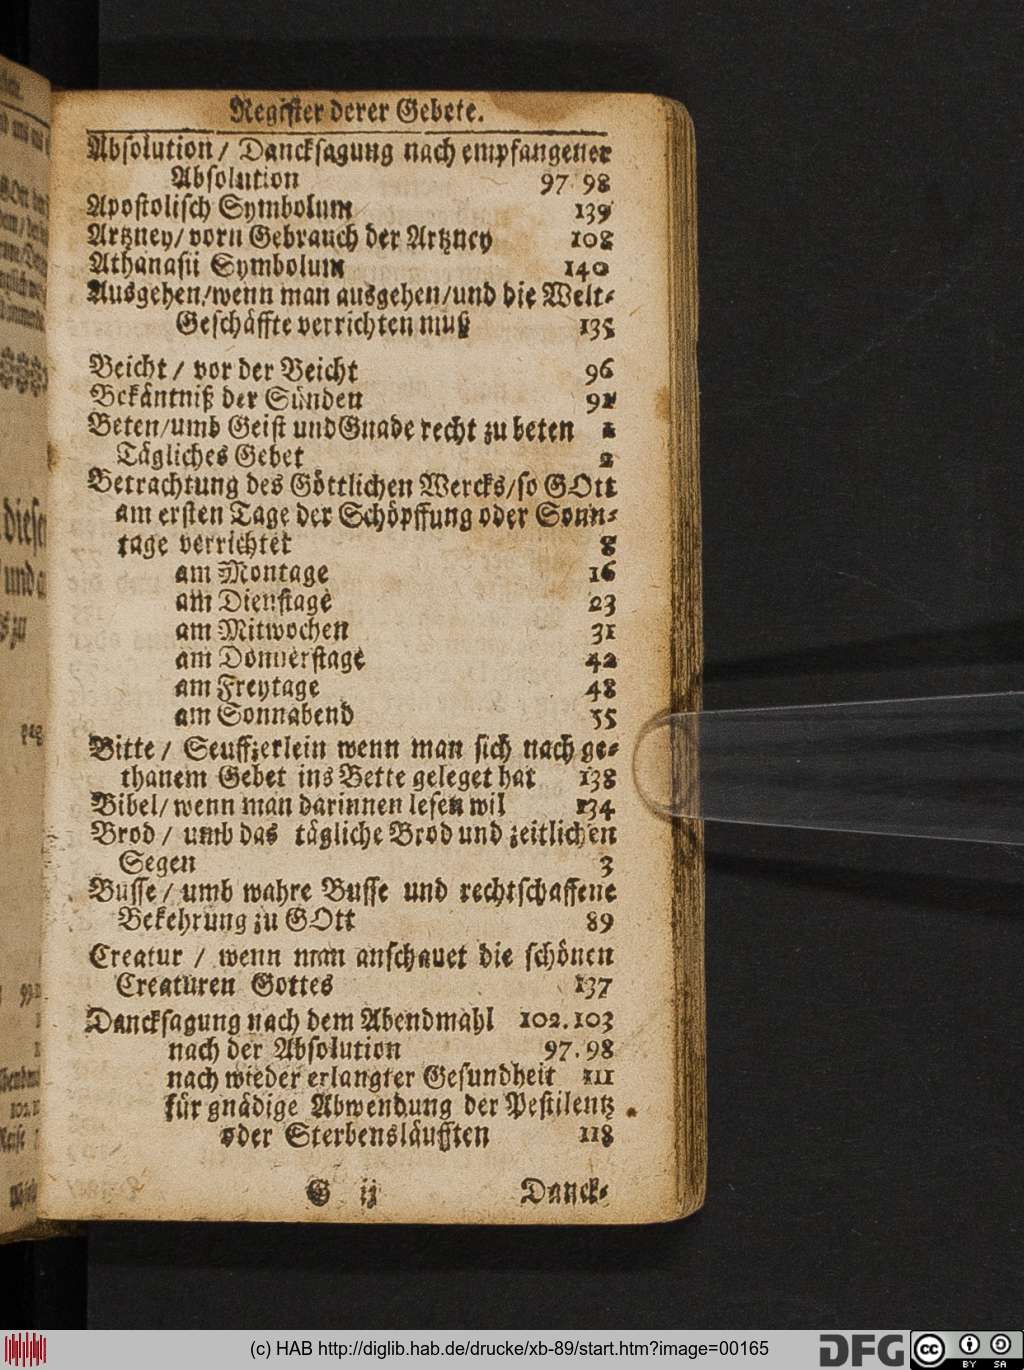 Register derer Gebete.
Absolution / Dancksagung nach empfangener
Absolution 97 98
Apostolisch Symbolum 139
Artzney / vorn Gebrauch der Artzney 108
Athanasii Symbolum 140
Ausgehen / wenn man ausgehen / und die Welt-
Geschäffte verrichten muß 135
Beicht / vor der Beicht 96
Bekäntniß der Sünden
Beten / umb Geist und Gnade recht zu beten 1
Tägliches Gebet 2
Betrachtung des Göttlichen Wercks / so GOtt
am ersten Tage der Schöpffung oder Sonn-
tage verrichtet 8
am Montage 16
am Dienstage 23
am Mitwochen 31
am Donnerstage 42
am Freytage 48
am Sonnabend 55
Bitte / Seuffzerlein wenn man sich nach ge-
thanem Gebet ins Bette geleget hat 138
Bibel / wenn man darinnen lesen wil 134
Brod / umb das tägliche Brod und zeitlichen
Segen 3
Busse / umb wahre Busse und rechtschaffene
Bekehrung zu GOtt 89
Creatur / wenn man anschauet die schönen
Creaturen Gottes 137
Dancksagung nach dem Abendmahl 102. 103
nach der Absolution 97. 98
nach wieder erlangter Gesundheit 111
für gnädige Abwendung der Pestilentz
oder Sterbensläufften 118
G ij Danck-
(c) HAB http://diglib.hab.de/drucke/xb-89/start.htm?image=00165
DFG
cc
BY SA